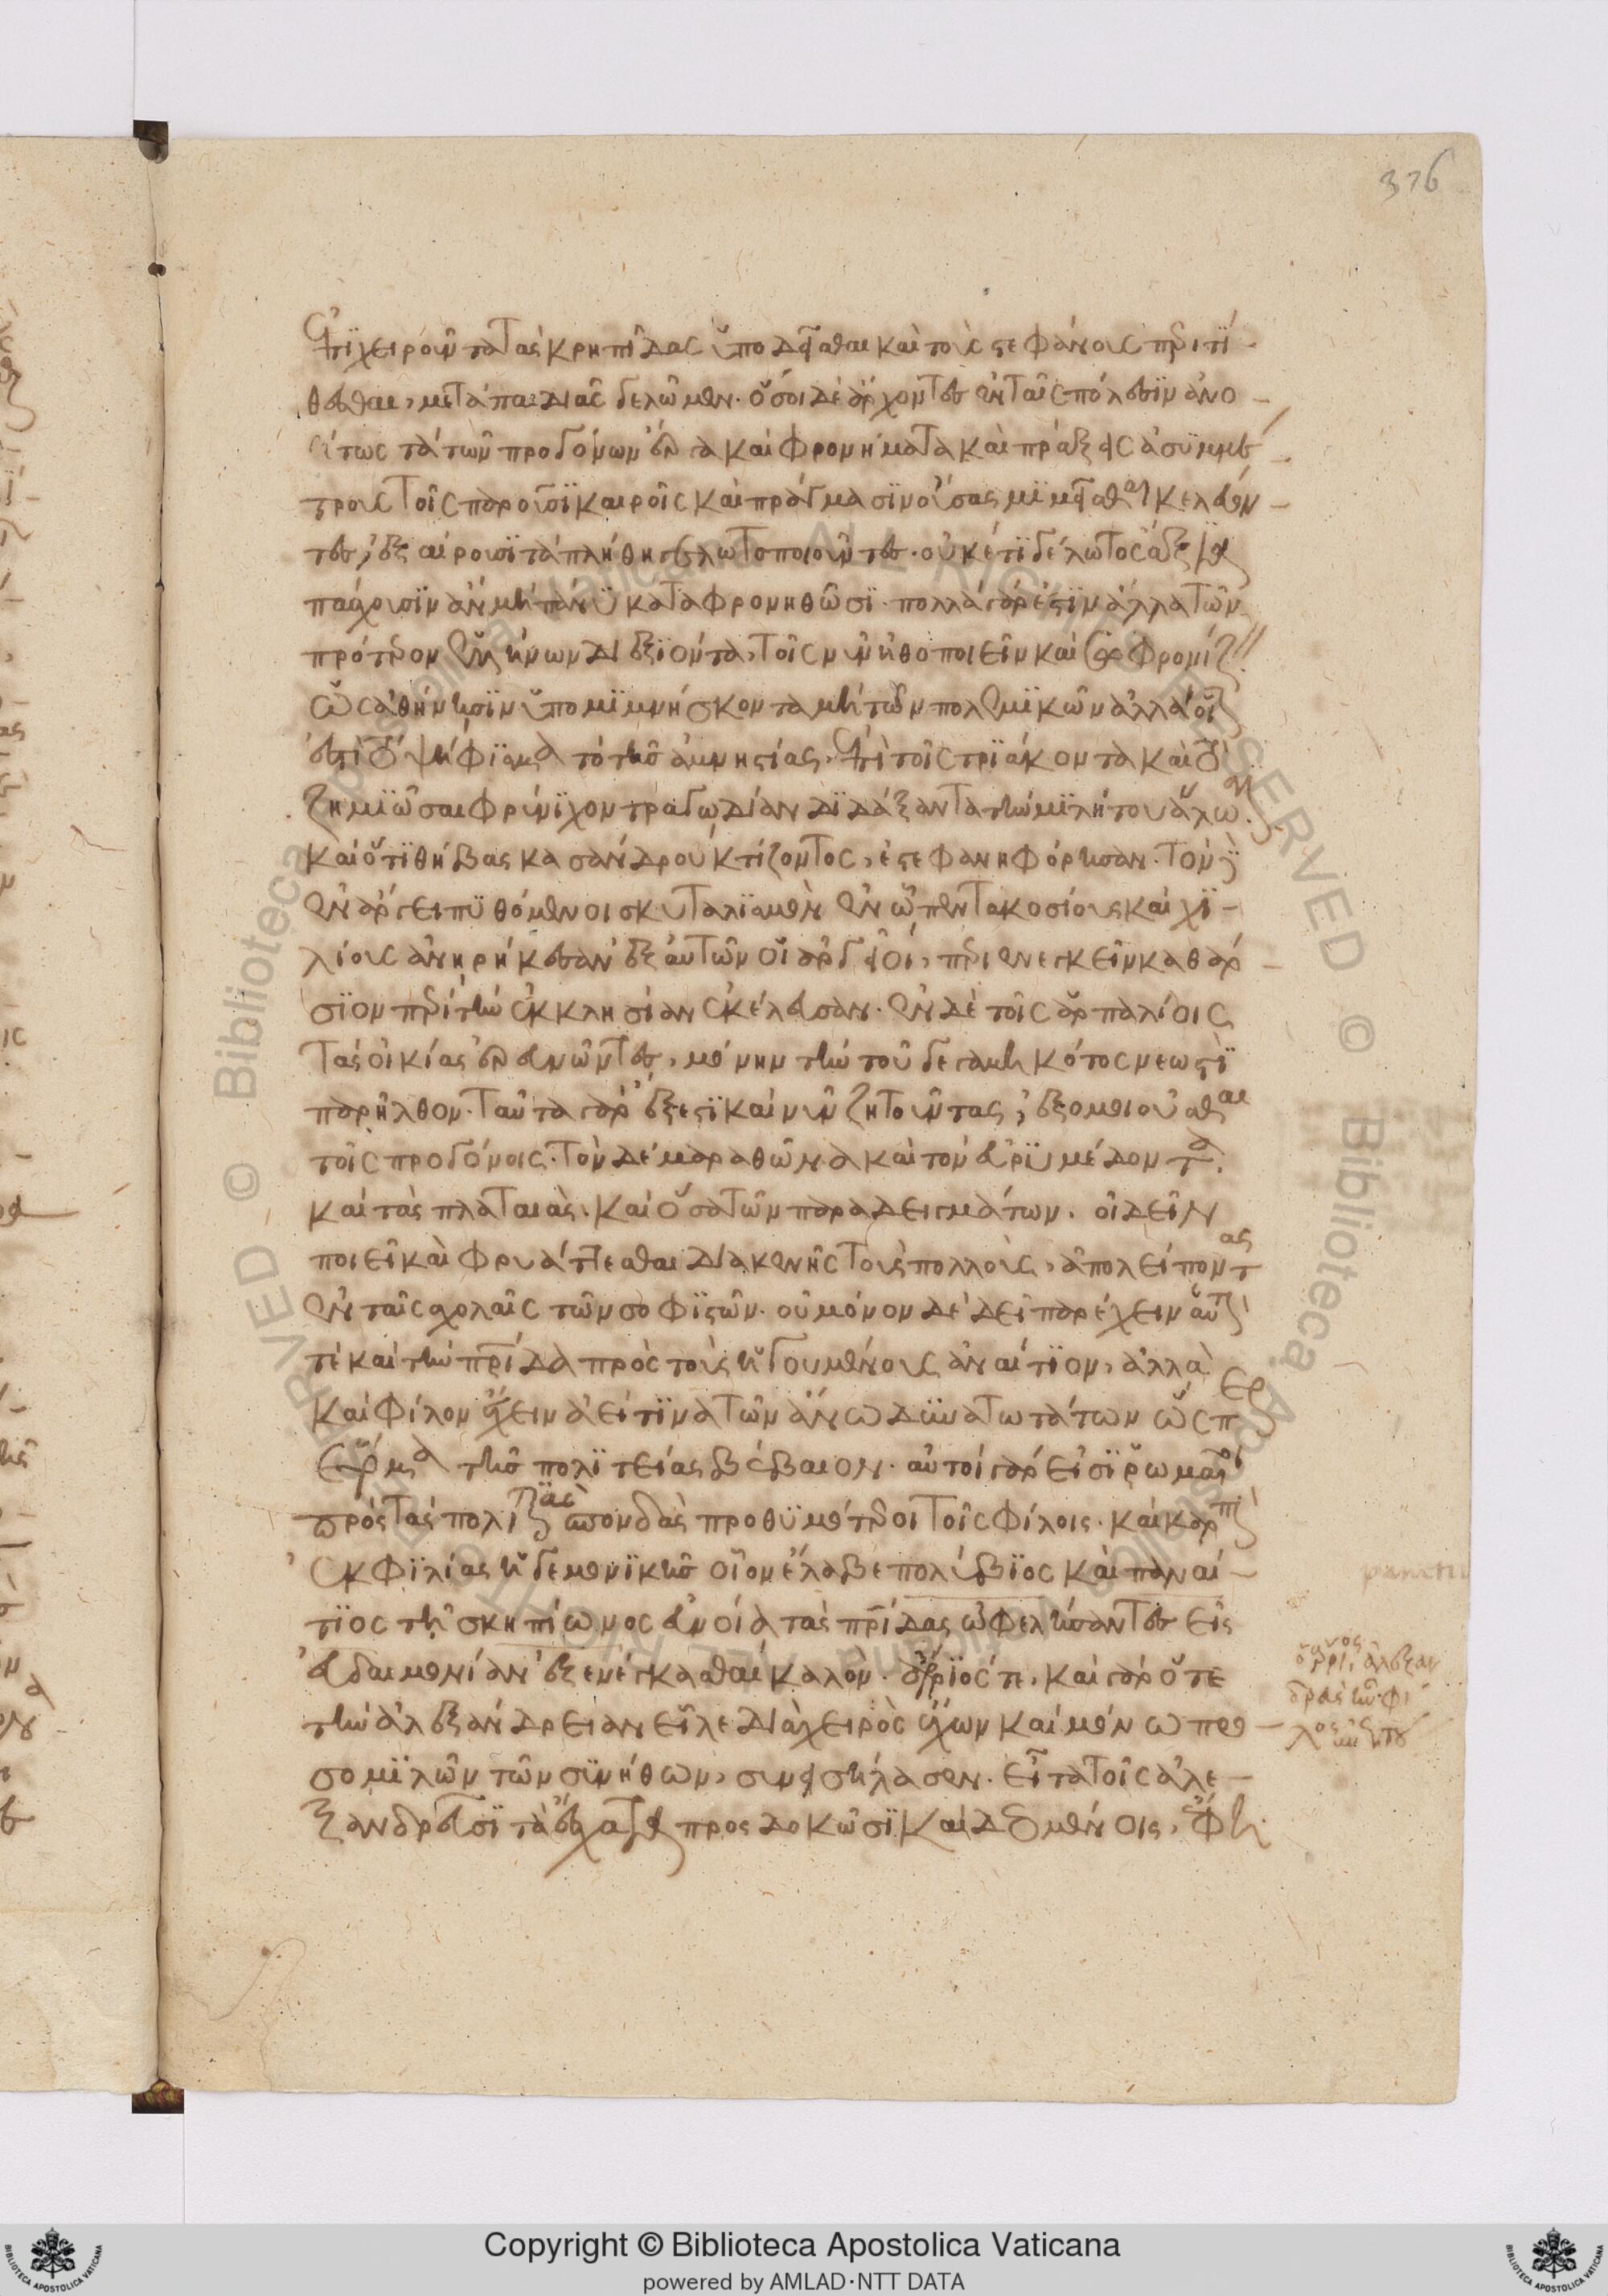 376
ἐπιχειροῦντα τὰς κρηπῖδας ὑποδεῖσθαι καὶ τοὺς στεφάνους περιτί-
θεσθαι, μετὰ παιδιᾶς γελῶμεν. ὅσοι δὲ ἄρχοντες ἐν ταῖς πόλεσιν ἀνο-
ήτως τὰ τῶν προγόνων ἔργα καὶ φρονήματα καὶ πράξεις ἀσυμμέ-
τρους τοῖς παροῦσι καιροῖς καὶ πράγμασιν οὔσας μιμεῖσθαι κελεύον-
τες, ἐξαίρουσι τὰ πλήθη γελωτοποιοῦντες. οὐκέτι γέλωτος ἄξια
πάσχουσιν ἂν μὴ πάνυ καταφρονηθῶσι. πολλὰ γάρ ἐστιν ἄλλα τῶν
πρότερον ἑλλήνων διεξιόντα, τοῖς νῦν ἠθοποιεῖν καὶ σωφρονίζειν
ὡς ἀθήνησιν ὑπομιμνήσκοντα μὴ τῶν πολεμικῶν ἀλλ' οἷον
ἐστὶ τὸ ψήφισμα τὸ τῆς ἀμνηστίας. ἐπὶ τοῖς τριάκοντα καὶ τὸ
ζημιῶσαι φρύνιχον τραγῳδίαν διδάξαντα τὴν μιλήτου ἅλωσιν.
καὶ ὅτι θήβας κασάνδρου κτίζοντος, ἐστεφανηφόρησαν. τὸν δὲ
ἐν ἄργει πυθόμενοι σκυταλισμὸν ἐν ᾧ πεντακοσίους καὶ χι-
λίους ἀνῃρήκεσαν ἐξ αὐτῶν οἱ ἀργεῖοι, περιενεγκεῖν καθάρ-
σιον περὶ τὴν ἐκκλησίαν ἐκέλευσαν. ἐν δὲ τοῖς ἁρπαλίοις
τὰς οἰκίας ἐρευνῶντες, μόνην τὴν τοῦ γεγαμηκότος νεωστὶ
παρῆλθον. ταῦτα γὰρ ἔξεστι καὶ νῦν ζητοῦντας, ἐξομοιοῦσθαι
τοῖς προγόνοις. τὸν δὲ μαραθῶνα καὶ τὸν εὐρυμέδοντα.
καὶ τὰς πλαταιάς. καὶ ὅσα τῶν παραδειγμάτων. οἰδεῖν
ποιεῖ καὶ φρυάττεσθαι διακενῆς τοὺς πολλούς, ἀπολείποντας
ἐν ταῖς σχολαῖς τῶν σοφιστῶν. οὐ μόνον δὲ δεῖ παρέχειν αὑτόν
τε καὶ τὴν πατρίδα πρὸς τοὺς ἡγουμένους ἀναίτιον, ἀλλὰ
καὶ φίλον ἔχειν ἀεί τινα τῶν ἄνω δυνατωτάτων ὥσπερ
ἕρμα τῆς πολιτείας βέβαιον. αὐτοὶ γάρ εἰσι ῥωμαῖοι
πρὸς τὰς πολιτικὰς σπουδὰς προθυμότεροι τοῖς φίλοις. καὶ καρπὸν
ἐκ φιλίας ἡγεμονικῆς οἷον ἔλαβε πολύβιος καὶ παναί-
τιος τῇ σκηπίωνος εὐνοίᾳ τὰς πατρίδας ὠφελήσαντες εἰς
εὐδαιμονίαν ἐξενέγκασθαι καλόν. ἄρειός τε, καὶ γὰρ ὅτε
τὴν ἀλεξάνδρειαν εἷλε διὰ χειρὸς ἔχων καὶ μόνῳ προ-
σομιλῶν τῶν συνήθων, συνεισήλασεν. εἶτα τοῖς ἀλε-
ξανδρεῦσι τὰ ἔσχατα προσδοκῶσι καὶ δεομένοις, ἔφη